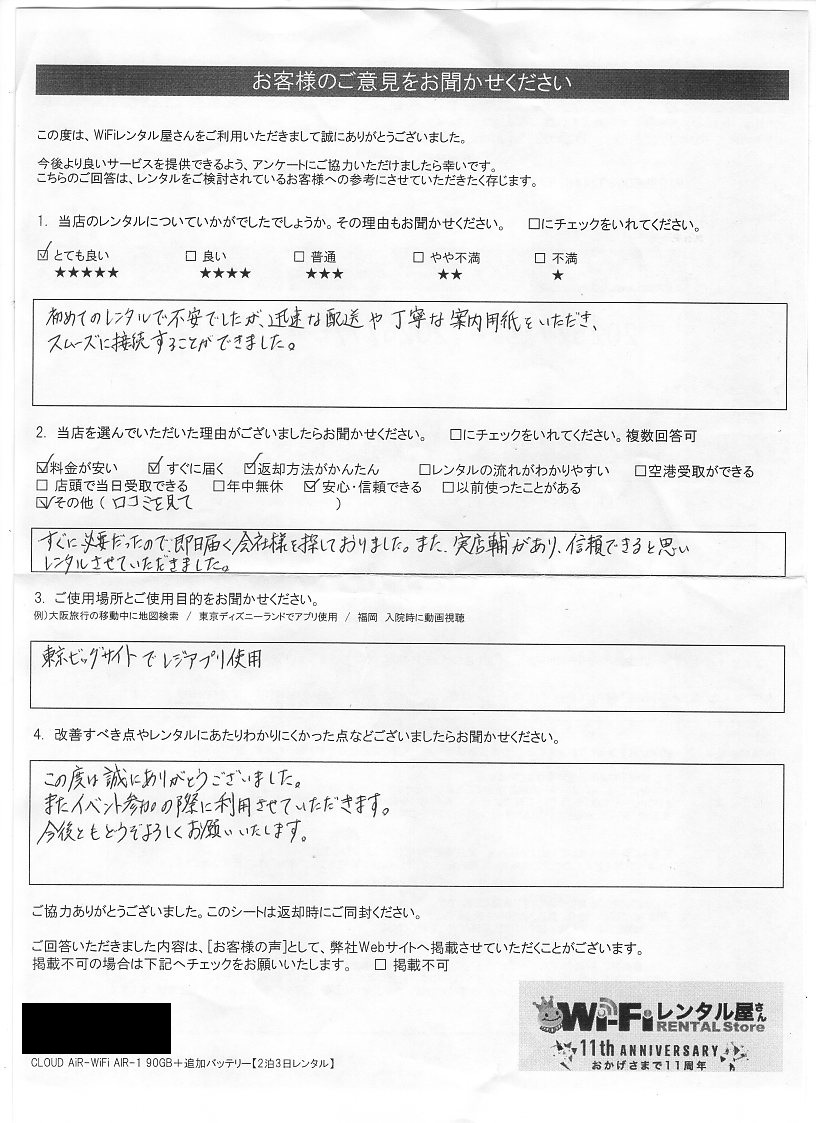 お客様のご意見をお聞かせください
この度は、WiFiレンタル屋さんをご利用いただきまして誠にありがとうございました。
今後より良いサービスを提供できるよう、アンケートにご協力いただけましたら幸いです。
こちらのご回答は、レンタルをご検討されているお客様への参考にさせていただきたく存じます。
1. 当店のレンタルについていかがでしたでしょうか。その理由もお聞かせください。 □にチェックをいれてください。
☑ とても良い □ 良い □ 普通 □ やや不満 □ 不満
★★★★★ ★★★★ ★★★ ★★ ★
初めてのレンタルで不安でしたが、迅速な配送や丁寧な案内用紙をいただき、
スムーズに接続することができました。
2. 当店を選んでいただいた理由がございましたらお聞かせください。 □にチェックをいれてください。複数回答可
☑料金が安い ☑ すぐに届く ☑返却方法がかんたん □レンタルの流れがわかりやすい □空港受取ができる
□ 店頭で当日受取できる □年中無休 ☑ 安心・信頼できる □以前使ったことがある
☑その他 ( 口コミを見て )
すぐに必要だったので、即日届く会社様を探しておりました。また、実店輔があり、信頼できると思い
レンタルさせていただきました。
3. ご使用場所とご使用目的をお聞かせください。
例)大阪旅行の移動中に地図検索 / 東京ディズニーランドでアプリ使用 / 福岡 入院時に動画視聴
東京ビッグサイトでレジアプリ使用
4. 改善すべき点やレンタルにあたりわかりにくかった点などございましたらお聞かせください。
この度は誠にありがとうございました。
またイベント参加の際に利用させていただきます。
今後ともどうぞよろしくお願いいたします。
ご協力ありがとうございました。このシートは返却時にご同封ください。
ご回答いただきました内容は、[お客様の声]として、弊社Webサイトへ掲載させていただくことがございます。
掲載不可の場合は下記へチェックをお願いいたします。 □ 掲載不可
Wi-Fiレンタル屋さん
RENTAL Store
11th ANNIVERSARY
おかげさまで11周年
CLOUD AiR-WiFi AIR-1 90GB+追加バッテリー【2泊3日レンタル】